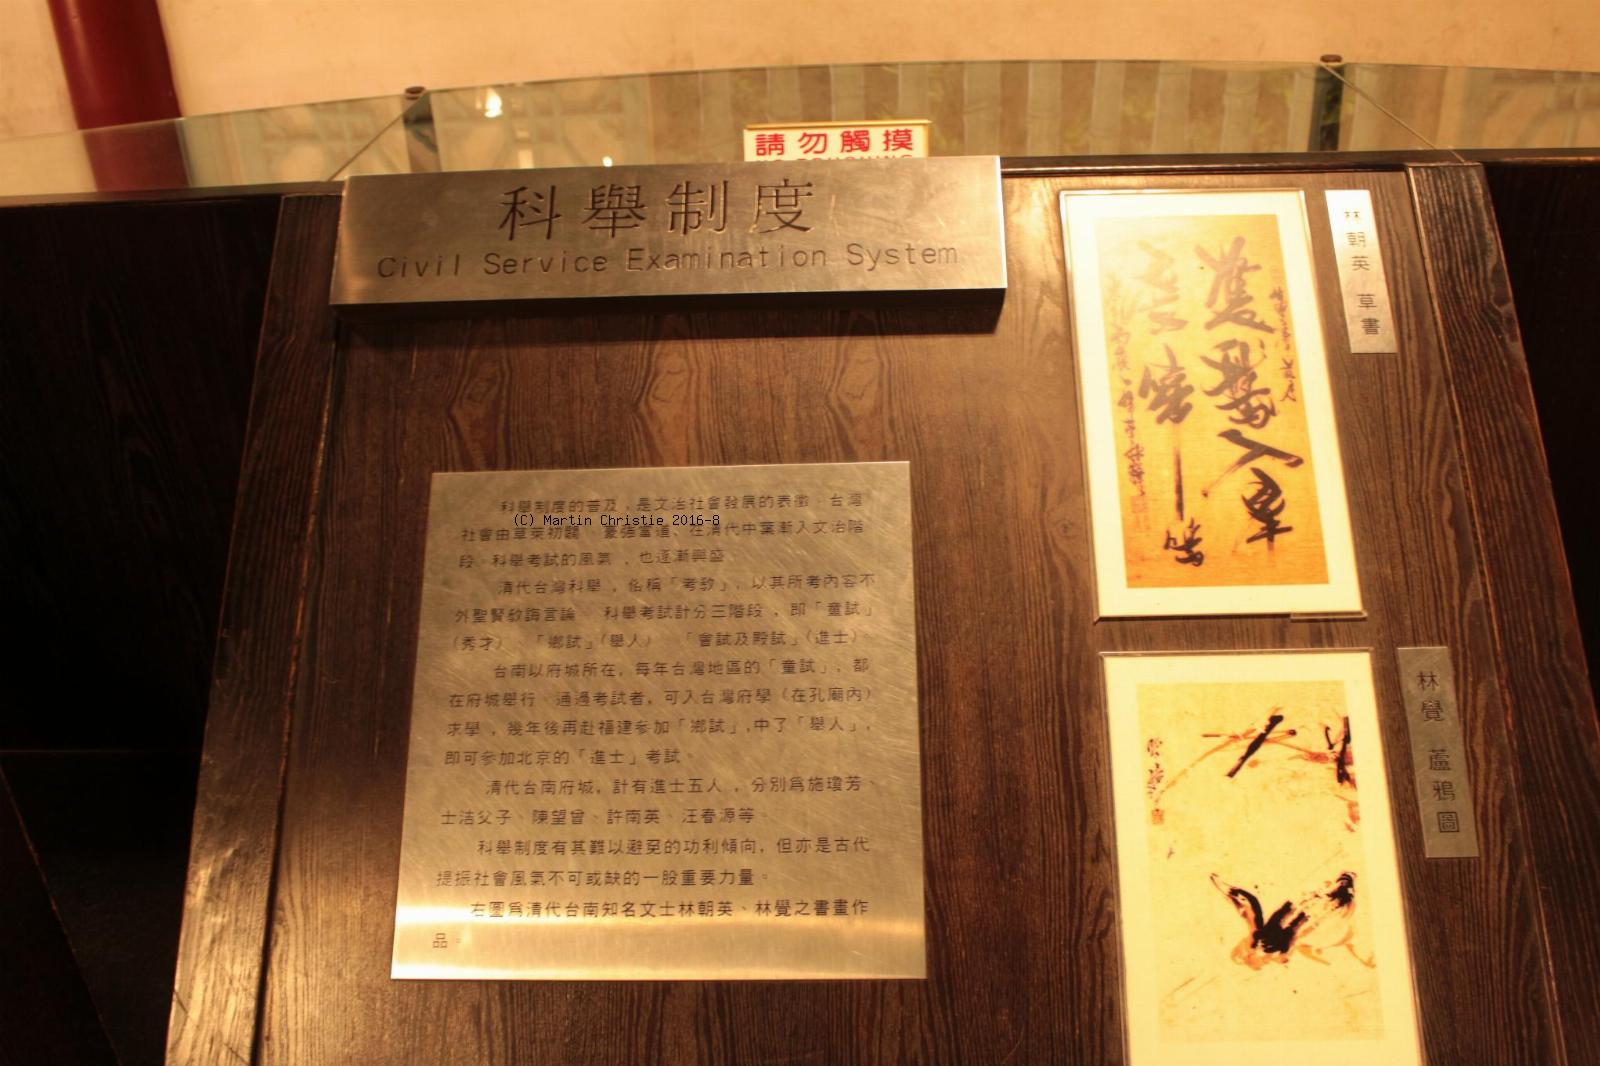 請勿觸摸
科舉制度
Civil Service Examination System
科舉制度的普及，是文治社會發展的表徵。台灣
(C) Martin Christie 2016-8
社會由草萊初闢、豪強當道，在清代中葉漸入文治階
段。科舉考試的風氣，也逐漸興盛
清代台灣科舉，俗稱「考教」，以其所考內容不
外聖賢教誨言論。科舉考試計分三階段，即「童試」
（秀才）、「鄉試」（舉人）、「會試及殿試」（進士）。
台南以府城所在，每年台灣地區的「童試」，都
在府城舉行。通過考試者，可入台灣府學（在孔廟內）
求學，幾年後再赴福建參加「鄉試」，中了「舉人」，
即可參加北京的「進士」考試。
清代台南府城，計有進士五人，分別為施瓊芳、
士洁父子、陳望曾、許南英、汪春源等。
科舉制度有其難以避免的功利傾向，但亦是古代
提振社會風氣不可或缺的一股重要力量。
右圖為清代台南知名文士林朝英、林覺之書畫作
品。
林朝英 草書
林覺 蘆鴉圖